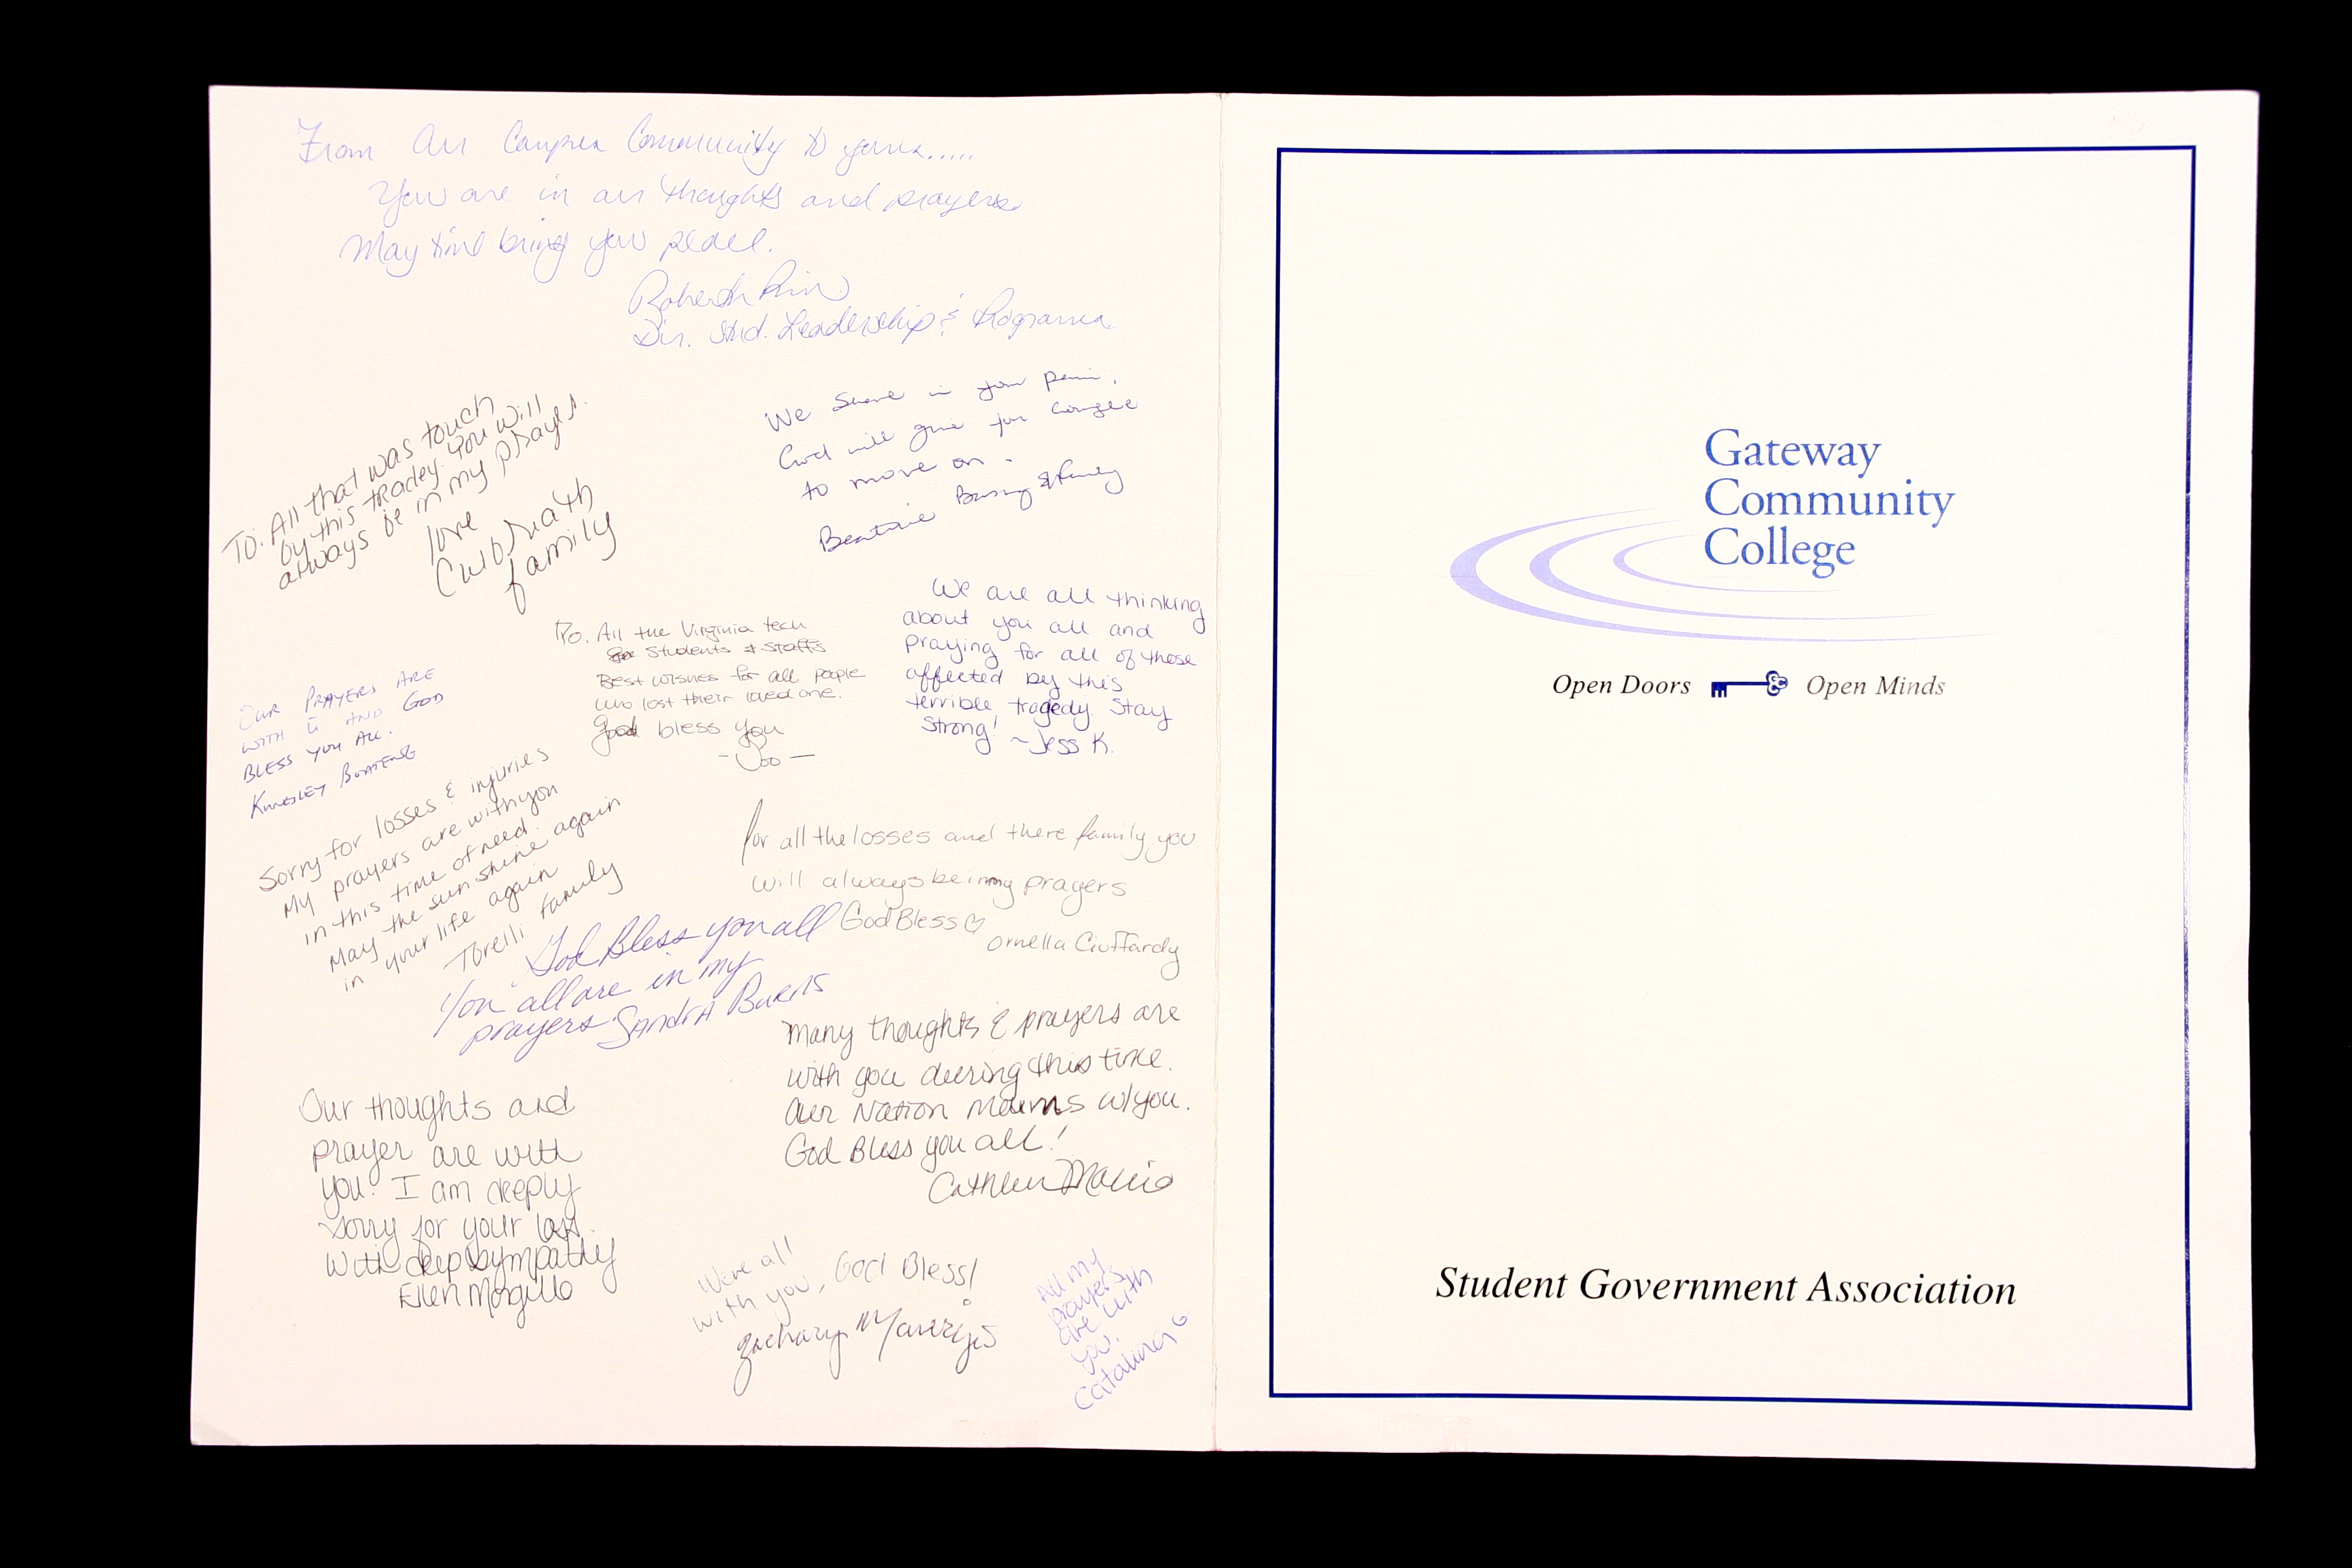 From our Campus Community to yours.....
You are in our thoughts and prayers
May time bring you peace.
Dir. Stud. Leadership & Programs
To: All that was touch
by this tradey. You will
always be in my prayers.
love
Culbreath
family
We share in your pain.
God will give you
to move on.
Beatrice
To. All the Virginia tech
Students & Staffs
Best wishes for all people
who lost their loved one.
god bless you
- Joo -
We are all thinking
about you all and
praying for all of those
affected by this
terrible tragedy. Stay
Strong! ~Jess K.
OUR PRAYERS ARE
WITH U AND GOD
BLESS YOU ALL.
KINGSLEY BOATENG
Sorry for losses & injuries
My prayers are with you
in this time of need.
May the sun shine again
in your life again
Torelli family
for all the losses and there family you
will always be in my prayers
God Bless ♡
Ornella Ciuffardy
God Bless you all
You all are in my
prayers SANDRA BURNS
Many thoughts & prayers are
with you during this time.
Our Nation Mourns w/you.
God Bless you all!
Cathleen
Our thoughts and
prayer are with
you. I am deeply
sorry for your loss.
With deep sympathy
Eileen Morgillo
We're all
with you, God Bless!
Zachary
All my
prayers
are with
you.
Catalina G
Gateway
Community
College
Open Doors Open Minds
Student Government Association